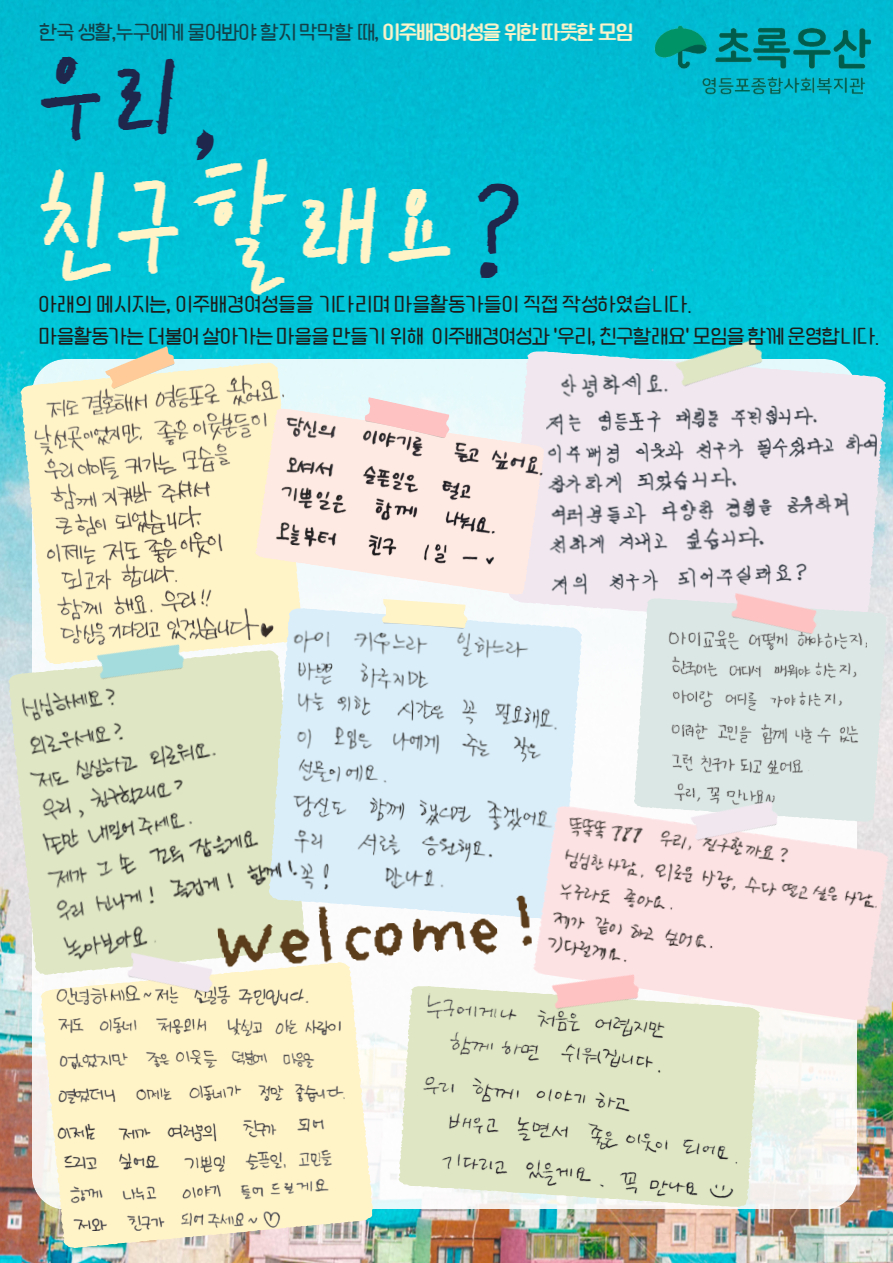 한국 생활,누구에게 물어봐야 할지 막막할 때, 이주배경여성을 위한 따뜻한 모임
초록우산
영등포종합사회복지관
우리,
친구할래요?
아래의 메시지는, 이주배경여성들을 기다리며 마을활동가들이 직접 작성하였습니다.
마을활동가는 더불어 살아가는 마을을 만들기 위해 이주배경여성과 '우리, 친구할래요' 모임을 함께 운영합니다.
저도 결혼해서 영등포로 왔어요.
낯선곳이었지만, 좋은 이웃분들이
우리 아이들 커가는 모습을
함께 지켜봐 주셔서
큰 힘이 되었습니다.
이제는 저도 좋은 이웃이
되고자 합니다.
함께 해요. 우리!!
당신을 기다리고 있겠습니다♥
당신의 이야기를 듣고 싶어요.
오셔서 슬픈일은 털고
기쁜일은 함께 나눠요.
오늘부터 친구 1일 ㅡ✓
안녕하세요.
저는 영등포구 대림동 주민입니다.
이주배경 이웃과 친구가 필수있다고 하여
참가하게 되었습니다.
여러분들과 다양한 경험을 공유하며
친하게 지내고 싶습니다.
저의 친구가 되어주실래요?
심심하세요?
외로우세요?
저도 심심하고 외로워요.
우리, 친구할래요?
손만 내밀어 주세요.
제가 그 손 꼬옥 잡을게요
우리 신나게! 즐겁게! 함께!
놀아보아요.
아이 키우느라 일하느라
바쁜 하루지만
나를 위한 시간은 꼭 필요해요.
이 모임은 나에게 주는 작은
선물이에요.
당신도 함께 했으면 좋겠어요
우리 서로를 응원해요.
꼭! 만나요.
아이교육은 어떻게 해야하는지,
한국어는 어디서 배워야 하는지,
아이랑 어디를 가야하는지,
이러한 고민을 함께 나눌 수 있는
그런 친구가 되고 싶어요
우리, 꼭 만나요~
똑똑똑 ??? 우리, 친구할까요?
심심한 사람, 외로운 사람, 수다 떨고 싶은 사람.
누구라도 좋아요.
제가 같이 하고 싶어요.
기다릴게요.
welcome!
안녕하세요~ 저는 신길동 주민입니다.
저도 이동네 처음와서 낯설고 아는 사람이
없었지만 좋은 이웃들 덕분에 마음을
열었더니 이제는 이동네가 정말 좋습니다.
이제는 제가 여러분의 친구가 되어
드리고 싶어요 기쁜일 슬픈일, 고민들
함께 나누고 이야기 들어 드릴게요
저와 친구가 되어 주세요~ ♡
누구에게나 처음은 어렵지만
함께 하면 쉬워집니다.
우리 함께 이야기 하고
배우고 놀면서 좋은 이웃이 되어요.
기다리고 있을게요. 꼭 만나요 ☺